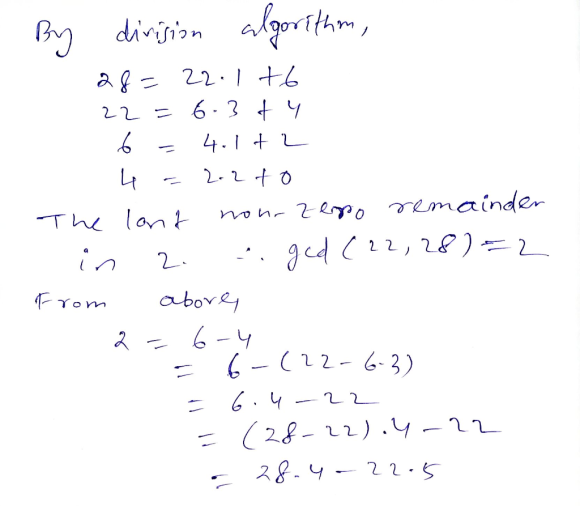 By division algorithm,
28 = 22.1 + 6
22 = 6.3 + 4
6 = 4.1 + 2
4 = 2.2 + 0
The last non-zero remainder
is 2. ∴ gcd (22, 28) = 2
From above,
2 = 6 - 4
= 6 - (22 - 6.3)
= 6.4 - 22
= (28 - 22).4 - 22
= 28.4 - 22.5